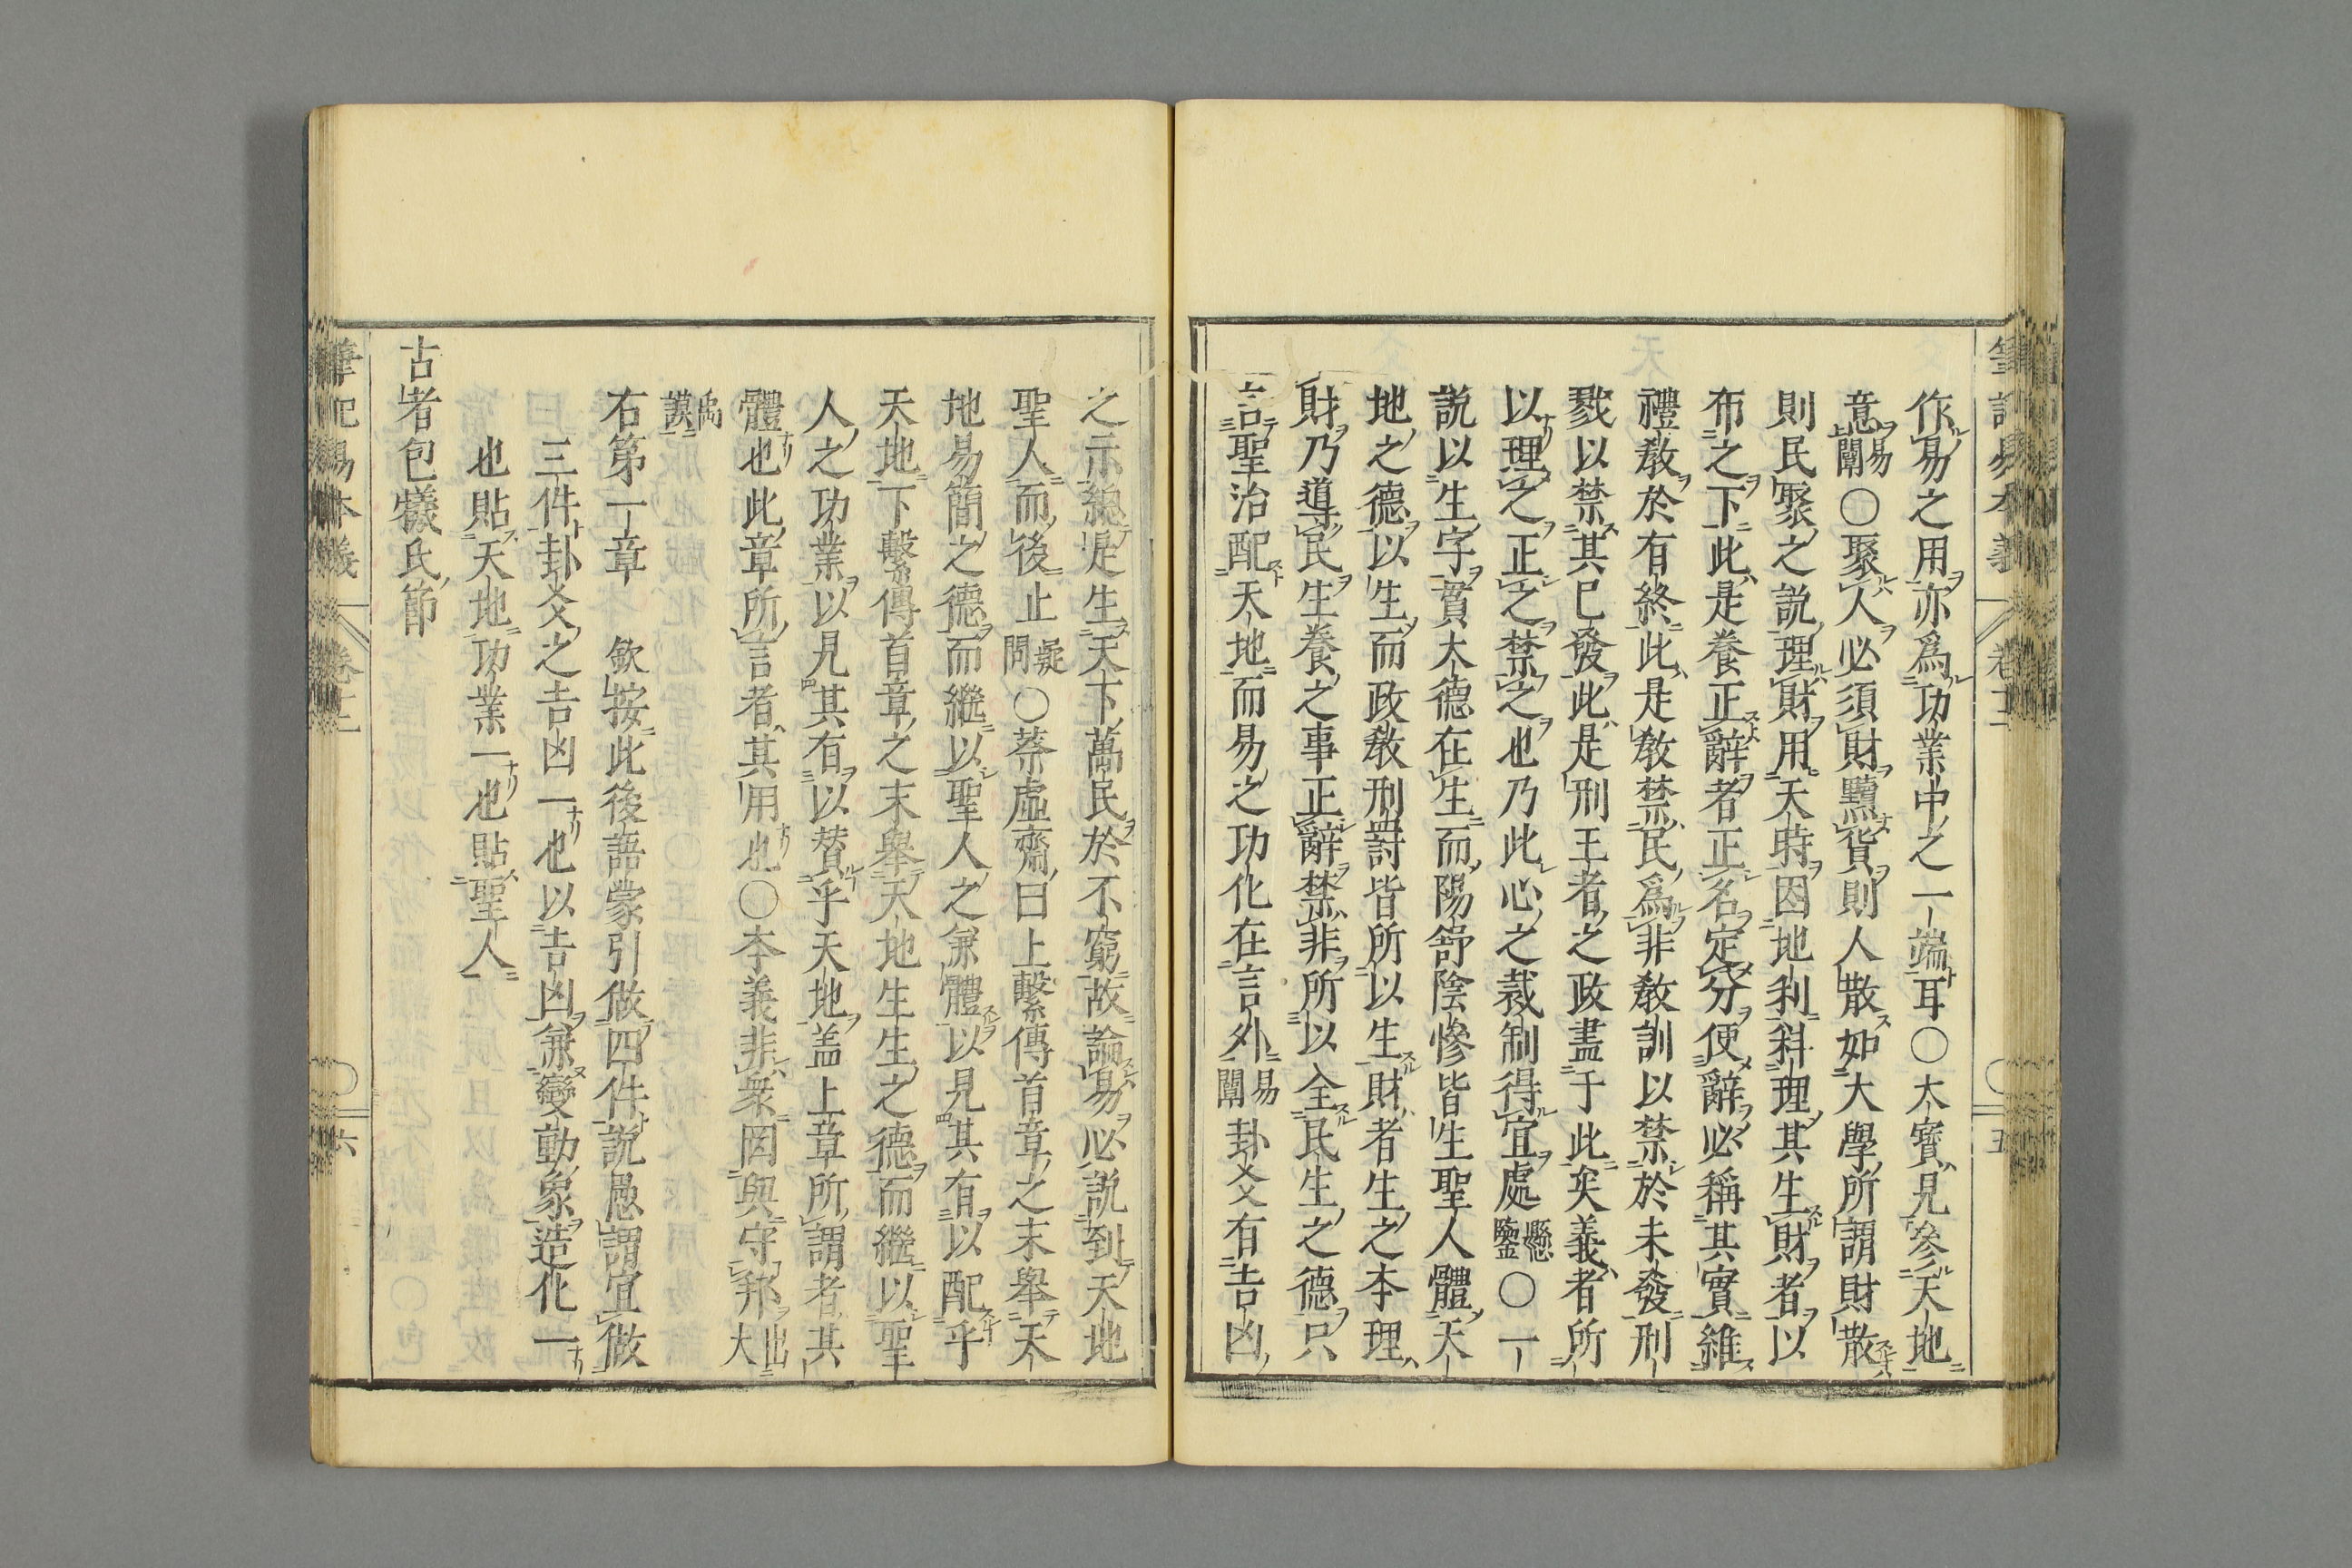 作易之用亦爲功業中之一端耳○大寶見參天地
意易闡○聚人必須財黷貨則人散如大學所謂財散
則民聚之説理財用天時因地利料理其生財者以
布之下此是養正辭者正名定分便辭必稱其實維
禮教於有終此是教禁民爲非教訓以禁於未發刑
戮以禁其已發此是刑王者之政盡于此矣義者所
以理之正之禁之也乃此心之裁制得宜處懸鑒○一
説以生字實大德在生而陽舒陰慘皆生聖人體天
地之德以生而政教刑罰皆所以生財者生之本理
財乃導民生養之事正辭禁非所以全民生之德只
言聖治配天地而易之功化在言外易闡卦爻有吉凶
之示總是生天下萬民於不窮故論易必説到天地
聖人而後止疑問○蔡虛齋曰上繫傳首章之末舉天
地易簡之德而繼以聖人之兼體以見其有以配乎
天地下繫傳首章之末舉天地生生之德而繼以聖
人之功業以見其有以賛乎天地盖上章所謂者其
體也此章所言者其用也○本義非衆罔與守邦出大
禹謨
右第一章　欽按此後語蒙引做四件説愚謂宜做
三件卦爻之吉凶一也以吉凶兼變動象造化一
也貼天地功業一也貼聖人
古者包犧氏節
筆記易本義　卷十一　五
筆記易本義　卷十一　六